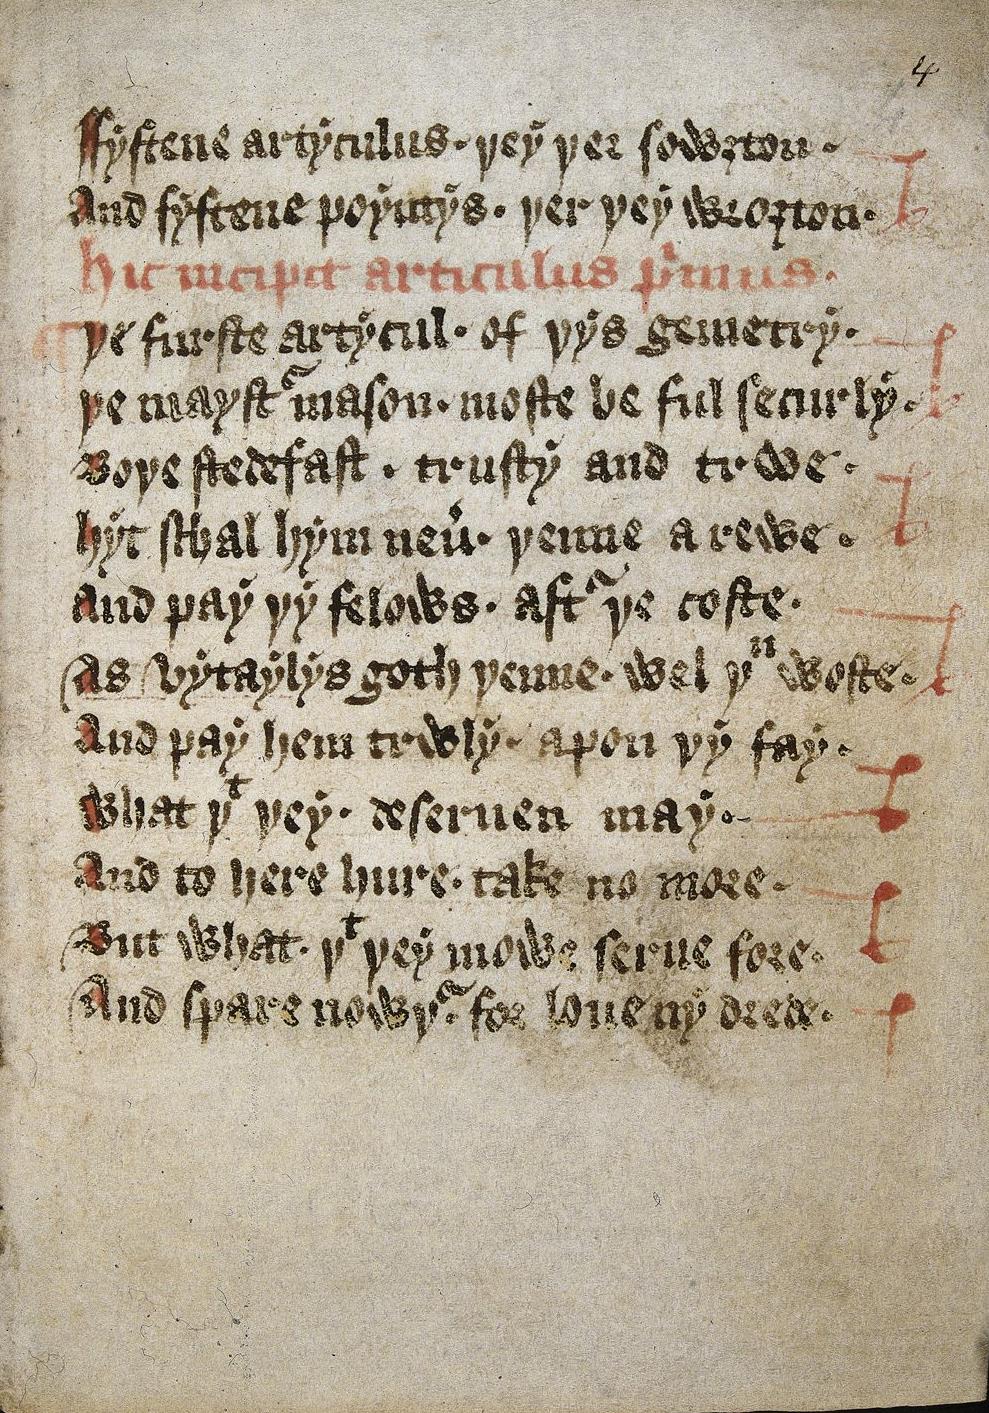 4
Ffyftene artyculus· þey þer sowȝton·
And fyftene poyntys· þer þey wroȝton·
Hic incipit articulus pꝰimus·
Þe furste artycul· of þys gemetry·
Þe mayst̉ mason· moste be ful securly·
Boþe stedefast· trusty and trwe·
Hyt schal hym neủ· þenne a rewe·
And pay þy felows· aft̉ þe coste·
As vytaylys goth þenne· wel þͧ woste·
And pay hem trwly· apon þy fay·
What þͭ þey· deseruen may·
And to here hure· take no more·
But what· þͭ þey mowe serue fore·
And spare nowþ̉· for loue ny drede·